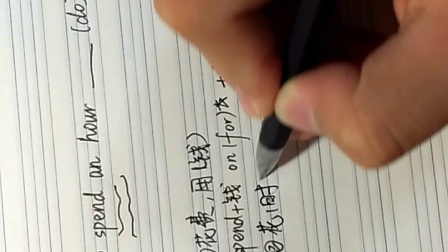 spend an hour ___ (do
花费,用(钱)
spend+钱 on(for)
②花时